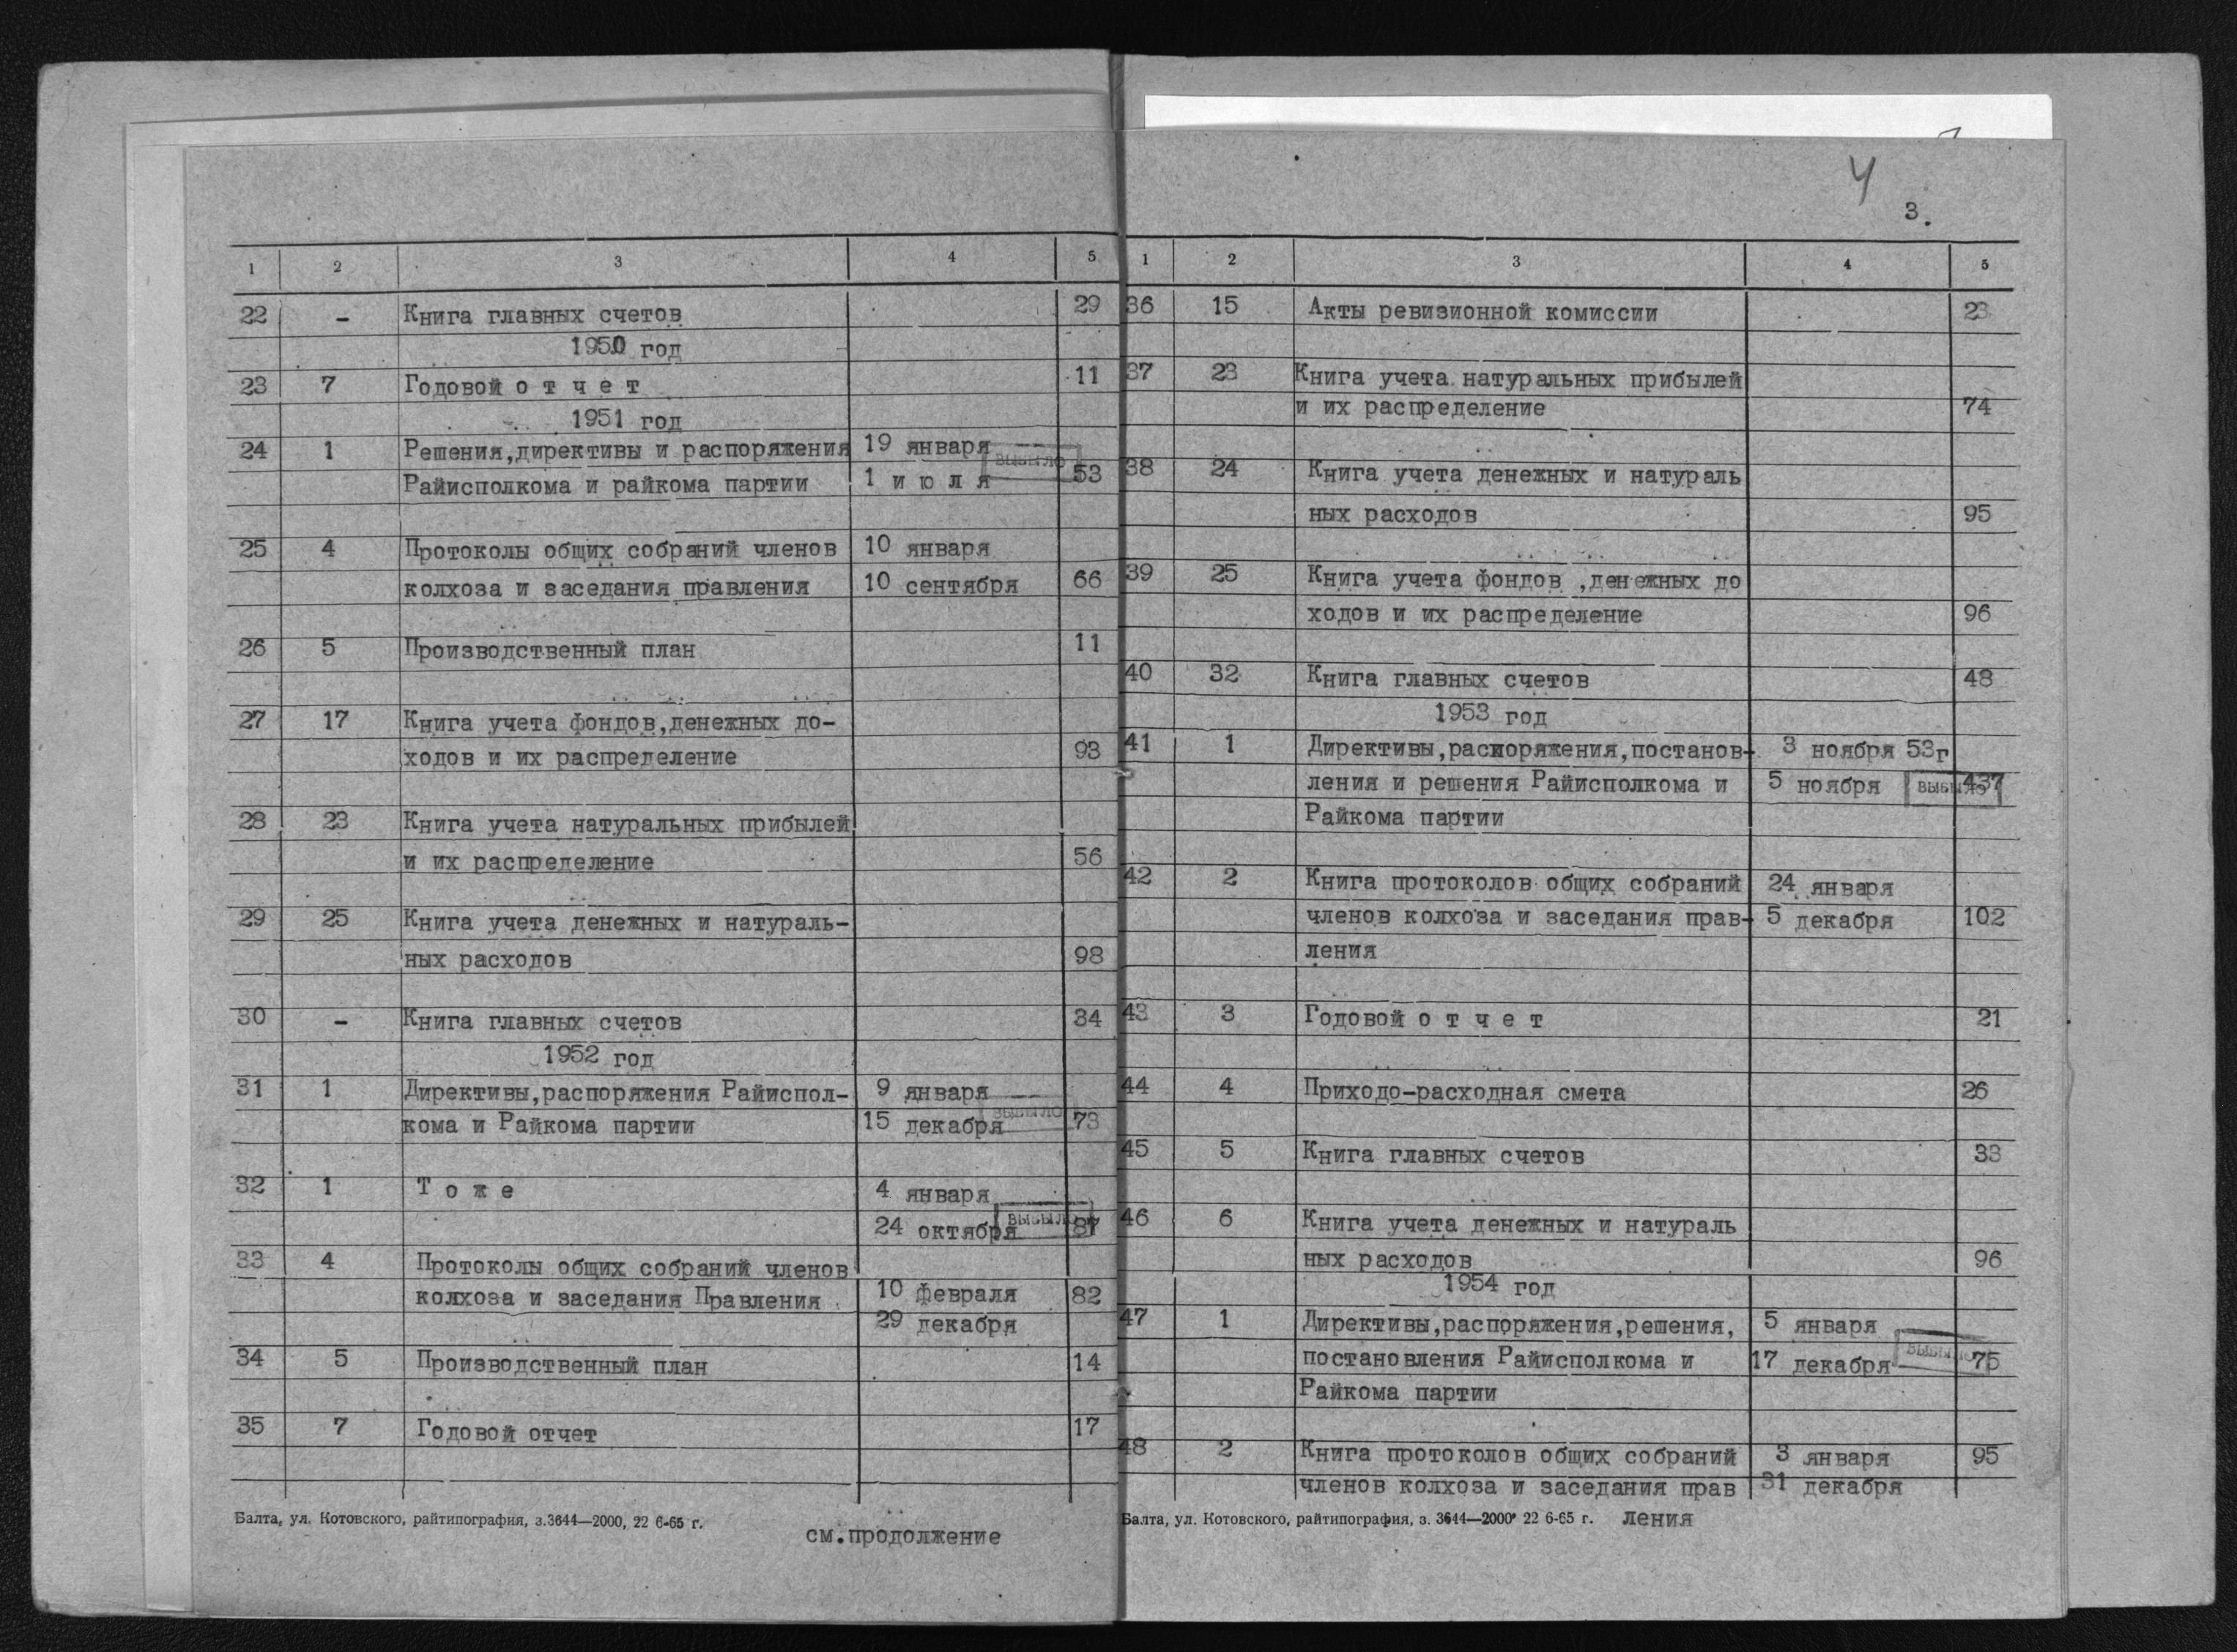 1 2 3 4 5
22 - Книга главных счетов 29
1950 год
23 7 Годовой о т ч е т 11
1951 год
24 1 Решения,директивы и распоряжения 19 января
ВЫБЫЛО
Райисполкома и райкома партии 1 и ю л я 53
25 4 Протоколы общих собраний членов 10 января
колхоза и заседания правления 10 сентября 66
26 5 Производственный план 11
27 17 Книга учета фондов,денежных до-
ходов и их распределение 93
28 23 Книга учета натуральных прибылей
и их распределение 56
29 25 Книга учета денежных и натураль-
ных расходов 98
30 - Книга главных счетов 34
1952 год
31 1 Директивы,распоряжения Райиспол- 9 января
ВЫБЫЛО
кома и Райкома партии 15 декабря 73
32 1 Т о ж е 4 января
ВЫБЫЛО
24 октября 87
33 4 Протоколы общих собраний членов
колхоза и заседания Правления 10 февраля 82
29 декабря
34 5 Производственный план 14
35 7 Годовой отчет 17
Балта, ул. Котовского, райтипография, з.3644—2000, 22 6-65 г.
см.продолжение
4
3.
1 2 3 4 5
36 15 Акты ревизионной комиссии 23
37 23 Книга учета натуральных прибылей
и их распределение 74
38 24 Книга учета денежных и натураль
ных расходов 95
39 25 Книга учета фондов ,денежных до
ходов и их распределение 96
40 32 Книга главных счетов 48
1953 год
41 1 Директивы,распоряжения,постанов- 3 ноября 53г
ления и решения Райисполкома и 5 ноября ВЫБЫЛО 437
Райкома партии
42 2 Книга протоколов общих собраний 24 января
членов колхоза и заседания прав- 5 декабря 102
ления
43 3 Годовой о т ч е т 21
44 4 Приходо-расходная смета 26
45 5 Книга главных счетов 33
46 6 Книга учета денежных и натураль
ных расходов 96
1954 год
47 1 Директивы,распоряжения,решения, 5 января
постановления Райисполкома и 17 декабря ВЫБЫЛО 75
Райкома партии
48 2 Книга протоколов общих собраний 3 января 95
членов колхоза и заседания прав 31 декабря
Балта, ул. Котовского, райтипография, з. 3644—2000 22 6-65 г. ления